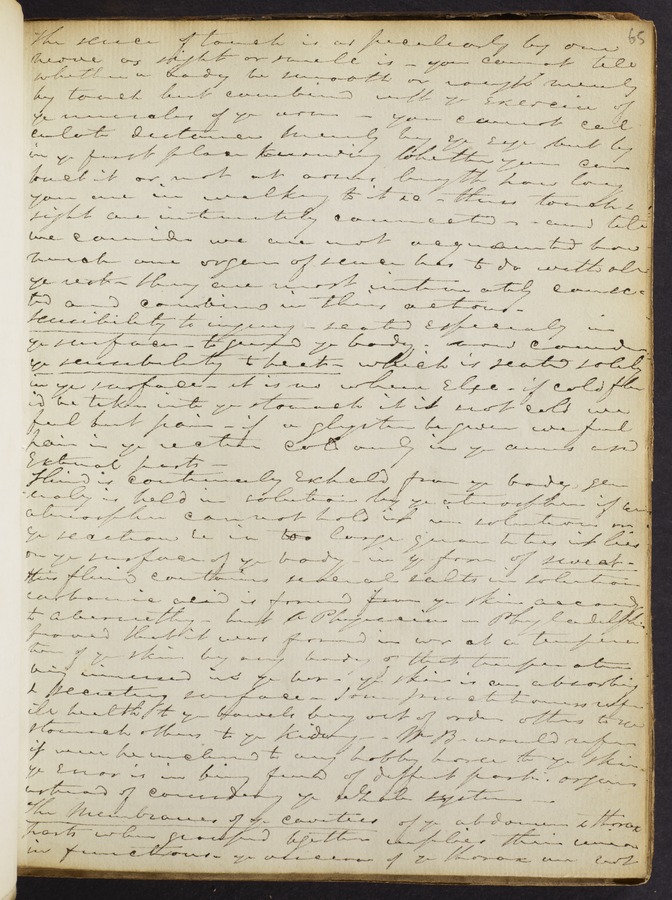 65
The sense of touch is as peculiarly by one
nerve as sight or smell is - you cannot tell
whether a body be smooth or rough merely
by touch but combined with ye exercise of
ye muscles of ye arm - you cannot cal
culate distance merely by ye Eye but by
in ye first place knowing whether you can
touch it or not at arms length how long
you are in walking to it &c - thus touch &
sight are intimately connected - and till
we consider we are not acquainted how
much one organ of sense has to do with all
ye rest - they are most intimately connec
ted and combine in their actions -
Sensibility to injury - seated Especially in
ye surface - to guard ye body - now consider
ye sensibility to heat - which is seated solely
in ye surface - it is no where Else - if cold flu
id be taken into ye stomach it is not cold we
feel but pain - if a glyster be given we feel
pain in ye rectum cold only in ye anus and
External parts -
Fluid is continually Exhaled from ye body gen
erally is held in solution by ye atmosphere if ye
atmosphere cannot hold it in solution or
ye secretion be in too large quantities it lies
on ye surface of ye body - in ye form of sweat -
this fluid contains several salts in solution
carbonic acid is formed from ye skin according
to abernethy - but A Physician in Phyladelphia
proved that it was formed in at a tempera
ture of ye skin by any body of that temperature
being immersed in ye - ye skin is an absorbing
& secreting surface - Some practitioners refer
ill health to ye bowels being out of order others to ye
stomach others to ye kidney - Mr B - would refer
if were he inclined to any hobby horse to ye skin
ye Error is in being fond of different parts organs
instead of considering ye whole system -
The Membranes of ye cavities of ye abdomen & thorax
parts when grouped together implies their union
in functions - ye viscera of ye thorax are not